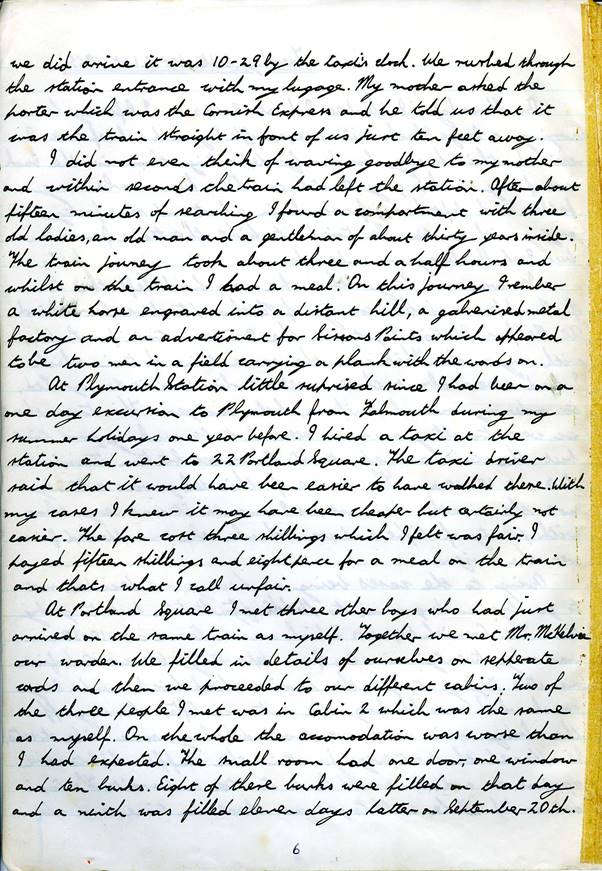 we did arrive it was 10-29 by the taxi's clock. We rushed through
the station entrance with my lugage. My mother asked the
porter which was the Cornish Express and he told us that it
was the train straight in front of us just ten feet away.
I did not even think of waving goodbye to my mother
and within seconds the train had left the station. After about
fifteen minutes of searching I found a compartment with three
old ladies, an old man and a gentleman of about thirty years inside.
The train journey took about three and a half hours and
whilst on the train I had a meal. On this journey I rember
a white horse engraved into a distant hill, a galvenised metal
factory and an advertisment for Sissons Paints which appeared
to be two men in a field carrying a plank with the words on.
At Plymouth Station little suprised since I had been on a
one day excursion to Plymouth from Falmouth during my
summer holidays one year before. I hired a taxi at the
station and went to 22 Portland Square. The taxi driver
said that it would have been easier to have walked there. With
my cases I knew it may have been cheaper but certainly not
easier. The fare cost three shillings which I felt was fair. I
payed fifteen shillings and eight pence for a meal on the train
and thats what I call unfair.
At Portland Square I met three other boys who had just
arrived on the same train as myself. Together we met Mr. McKelvie
our warden. We filled in details of ourselves on sepperate
cards and then we proceeded to our different cabins. Two of
the three people I met was in Cabin 2 which was the same
as myself. On the whole the accomodation was worse than
I had expected. The small room had one door, one window
and ten bunks. Eight of these bunks were filled on that day
and a ninth was filled eleven days latter on September 20th.
6